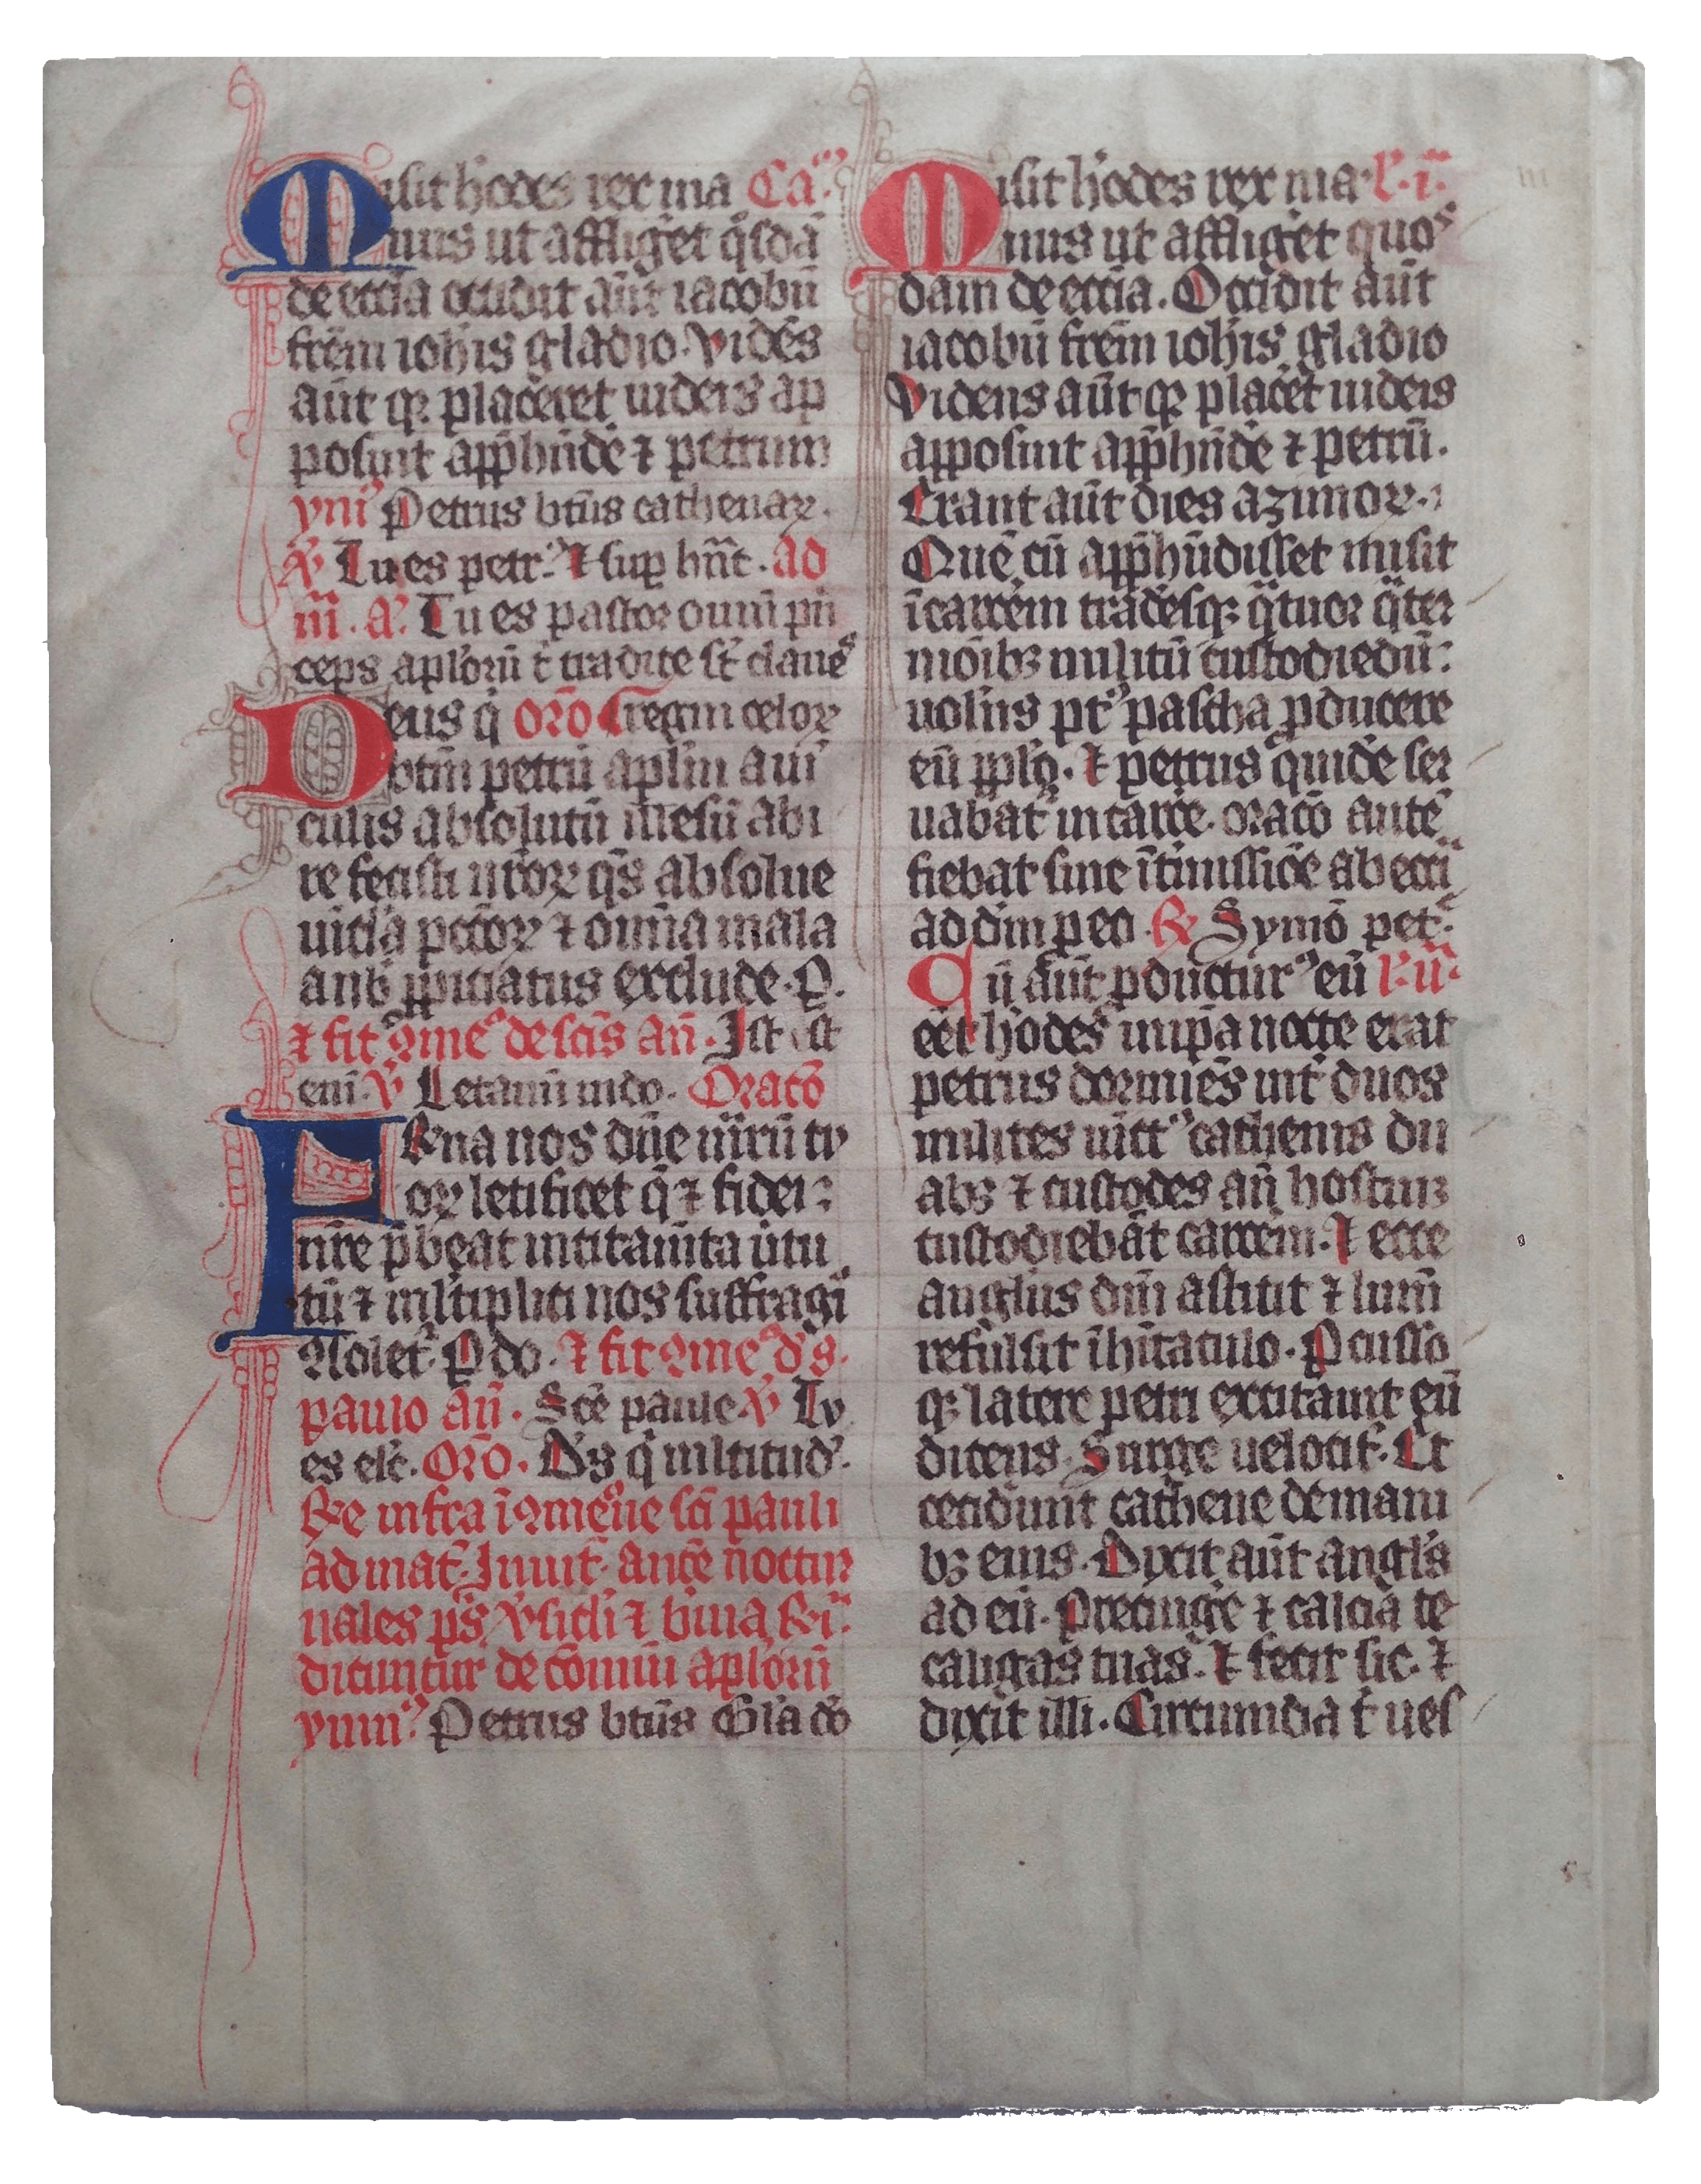 Misit h'odes rex ma Ca.
nus ut afflig'et q'sdā
de eccīa occidit aūt iacobū
frēm ioh'is gladio. Vidēs
aūt qꝫ placeret iudeis ap
posuit apph'nde' ⁊ petrum
ymꝰ Petrus btūs cathenaꝝ.
℣ Tu es petrꝰ. ⁊ sup hāt. ad
m̄. a. Tu es pastor ouiū prī
ceps ap'lorū t' tradite st̄ clauēs
Deus q' oro Gregm celoꝝ
btm̄ petrū ap'lm a uī
culis absolutū illesū abi
re fecisti nr̄oꝝ qs̄ absolue
uīcla pctōꝝ ⁊ omīa mala
a nb̄ ꝓpiciatus exclude. P.
⁊ fit ꝯmēo de sctīs an̄. Ist st
enī. ℣ Letamī in dō. Oracō
Frāna nos dn̄e m̄rū tu
oꝝ letificet q̄s ⁊ fidei
nr̄e p̄beat incitam̄ta v̄tu
tū ⁊ ml'tiplici nos suffragio
ꝯsolet'. P do. ⁊ fit ꝯmēo d' s.
paulo an̄. Sc̄e paule ℣ Tu
es elc̄. Oro. Ds q' m'ltitud'.
Re infra ī ꝯmēōne scī pauli
ad mat'. Inuit'. antē noctur
nales ps̄. ℣sicli ⁊ bina Rī.
dicuntur de cōmuni ap'lorū
ymnꝰ. Petrus btūs Gl'a dō
Misit h'odes rex ma l'. i.
nus ut afflig'et quos
dam de eccīa. Occidit aūt
iacobū frēm ioh'is gladio
Videns aūt qꝫ plac'et iudeis
apposuit apph'nde' ⁊ petrū.
Erant aūt dies azimoꝝ.
Quē cū apph'ndisset misit
ī carcēm tradēsqꝫ q'tuor q'ter
niōibꝫ militū custodiēdū:
uolēs pꝰt pascha ꝓducere
eū ppl'o. ⁊ petrus quidē ser
uabat' in carc'e. oracō autē
fiebat sine īt'missiōe ab eccīa
ad dm̄ p eo. ℟ Symō petrꝰ.
Cū aūt ꝓductur' eū l'. ii.
eēt h'odes in ip̄a nocte erat
petrus dormiēs int' duos
milites uīctꝰ cathenis du
abꝫ ⁊ custodes an̄ hostiuꝫ
custodiebāt carcēm. ⁊ ecce
angl'us dn̄i astitit ⁊ lum̄
refulsit ī h'itaculo. Pcusso
qꝫ latere petri excitauit eū
dicens. Surge uelocit'. Et
cecidunt cathene de mani
bꝫ eius. Dixit aūt angl's
ad eū. Precing'e ⁊ calcia te
caligas tuas. ⁊ fecit sic. ⁊
dixit illi. Circumda t' ues